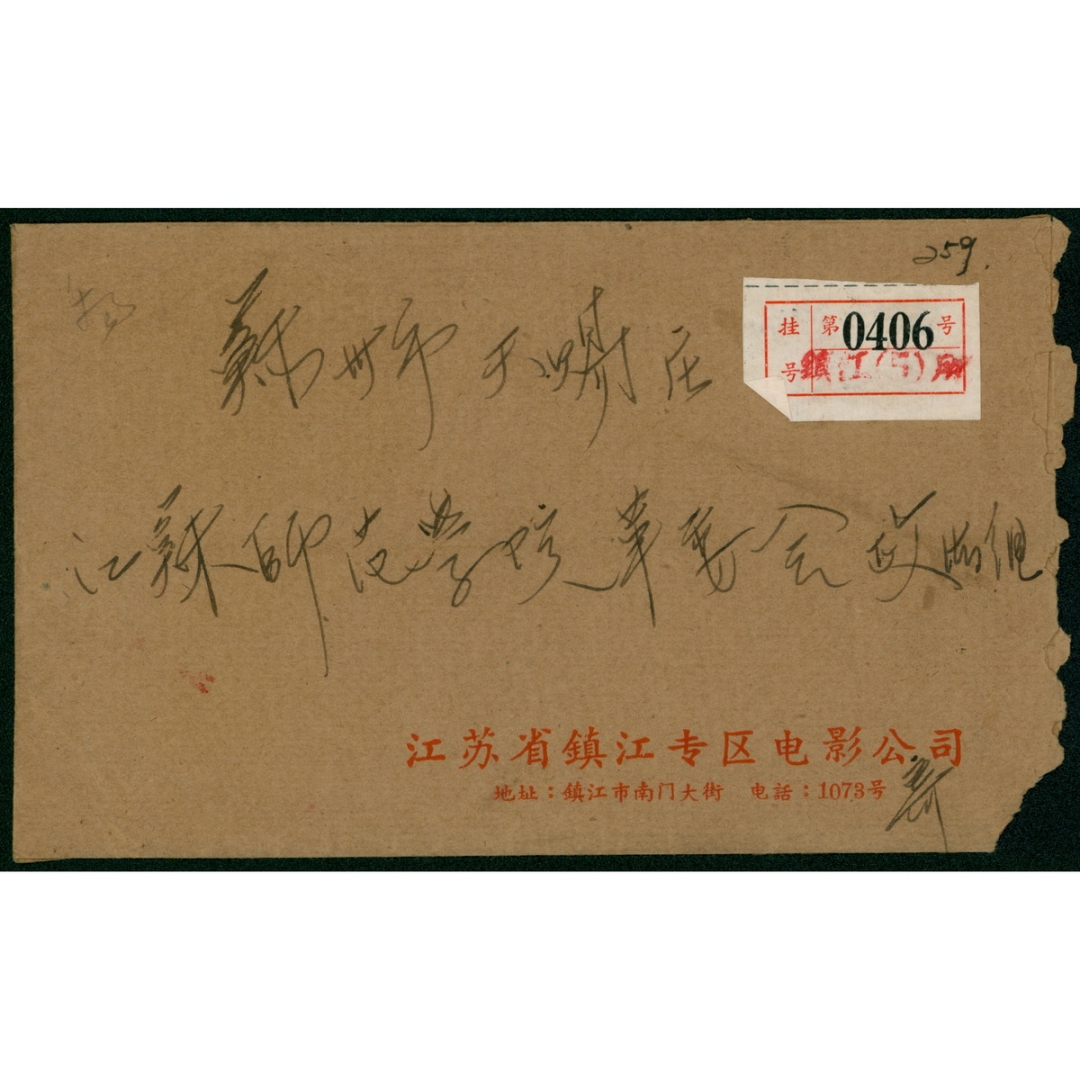 259.
挂号 第0406号
鎮江(5)
蘇州市天賜庄
江蘇師范学院革委会政治组
江苏省鎮江专区电影公司
地址：鎮江市南门大街 电話：1073号
寄